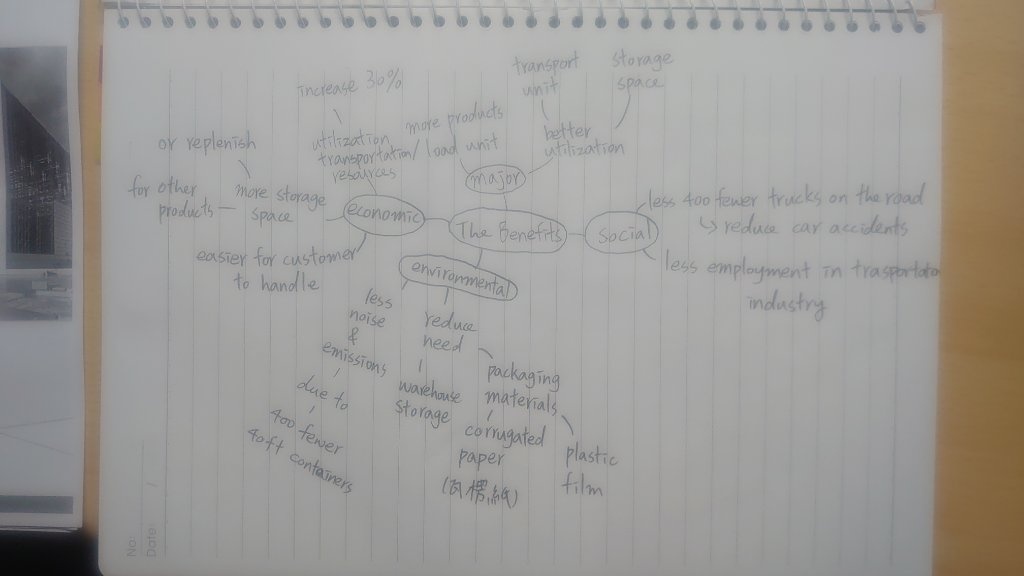 increase 30%
utilization
transportation/
resources
more products
load unit
transport
unit
storage
space
better
utilization
major
or replenish
for other
products
more storage
space
economic
The Benefits
social
less 400 fewer trucks on the road
↳ reduce car accidents
less employment in trasportatio
industry
easier for customer
to handle
environmental
less
noise
&
emissions
due to
400 fewer
40ft containers
reduce
need
warehouse
storage
packaging
materials
corrugated
paper
(瓦楞紙)
plastic
film
No.
Date